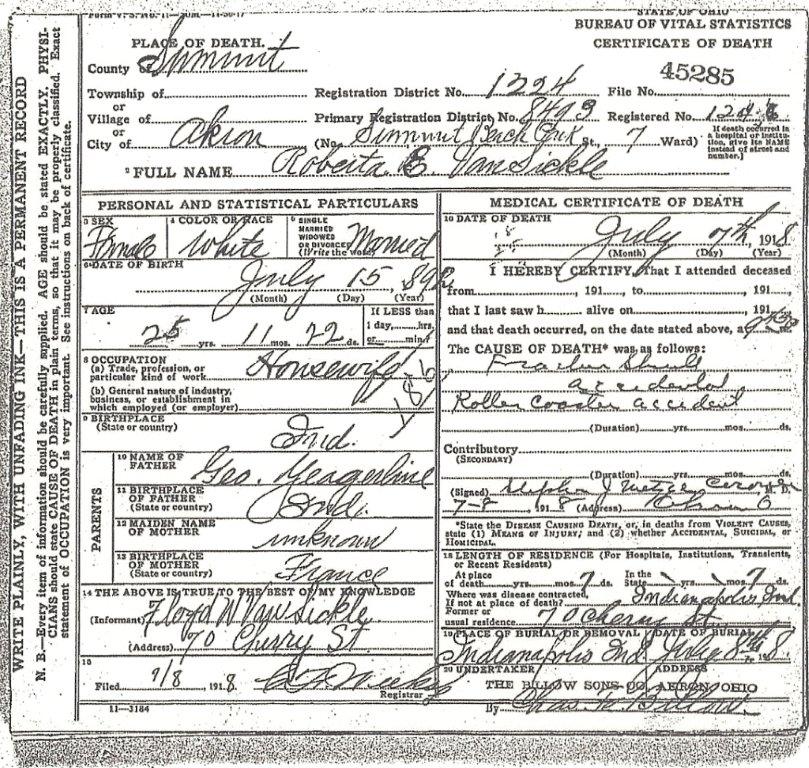 STATE OF OHIO
BUREAU OF VITAL STATISTICS
CERTIFICATE OF DEATH
PLACE OF DEATH.
County of Summit
Township of
or
Village of
or
City of Akron
Registration District No. 1224 File No. 45285
Primary Registration District No. 8493 Registered No.
(No. Summit Beach Park St., 7 Ward)
If death occurred in a hospital or institution, give its NAME instead of street and number.]
2 FULL NAME Roberta E VanSickle
WRITE PLAINLY, WITH UNFADING INK—THIS IS A PERMANENT RECORD
N. B.—Every item of information should be carefully supplied. AGE should be stated EXACTLY. PHYSI-
CIANS should state CAUSE OF DEATH in plain terms, so that it may be properly classified. Exact
statement of OCCUPATION is very important. See instructions on back of certificate.
PERSONAL AND STATISTICAL PARTICULARS
3 SEX Female
4 COLOR OR RACE White
5 SINGLE
MARRIED
WIDOWED
OR DIVORCED
(Write the word) Married
6 DATE OF BIRTH
July 15, 892
(Month) (Day) (Year)
7 AGE
25 yrs. 11 mos. 22 ds.
If LESS than
1 day, hrs.
or min.?
8 OCCUPATION
(a) Trade, profession, or
particular kind of work Housewife
(b) General nature of industry,
business, or establishment in
which employed (or employer)
9 BIRTHPLACE
(State or country) Ind.
PARENTS
10 NAME OF
FATHER Geo. Yeagerline
11 BIRTHPLACE
OF FATHER
(State or country) Ind.
12 MAIDEN NAME
OF MOTHER unknown
13 BIRTHPLACE
OF MOTHER
(State or country) France
14 THE ABOVE IS TRUE TO THE BEST OF MY KNOWLEDGE
(Informant) Floyd W VanSickle
(Address) 70 Cherry St
15
Filed 7/8 1918
Registrar
11—3184
MEDICAL CERTIFICATE OF DEATH
16 DATE OF DEATH
July 7th, 1918
(Month) (Day) (Year)
I HEREBY CERTIFY, That I attended deceased
from , 191 , to , 191 ,
that I last saw h alive on , 191 ,
and that death occurred, on the date stated above, at
The CAUSE OF DEATH* was as follows:
Fracture Skull
accidental
Roller Coaster accident
(Duration) yrs. mos. ds.
Contributory
(SECONDARY)
(Duration) yrs. mos. ds.
(Signed) M. D.
7-8, 1918 (Address) Akron O
*State the DISEASE CAUSING DEATH, or, in deaths from VIOLENT CAUSES,
state (1) MEANS OF INJURY; and (2) whether ACCIDENTAL, SUICIDAL, or
HOMICIDAL.
18 LENGTH OF RESIDENCE (For Hospitals, Institutions, Transients,
or Recent Residents)
At place
of death yrs. mos. 7 ds.
In the
State yrs. mos. 7 ds.
Where was disease contracted,
If not at place of death? Indianapolis Ind.
Former or
usual residence 70 Cherry St.
19 PLACE OF BURIAL OR REMOVAL DATE OF BURIAL
Indianapolis Ind. July 8th, 1918
20 UNDERTAKER ADDRESS
THE BILLOW SONS CO. AKRON, OHIO
By Chas. Billow